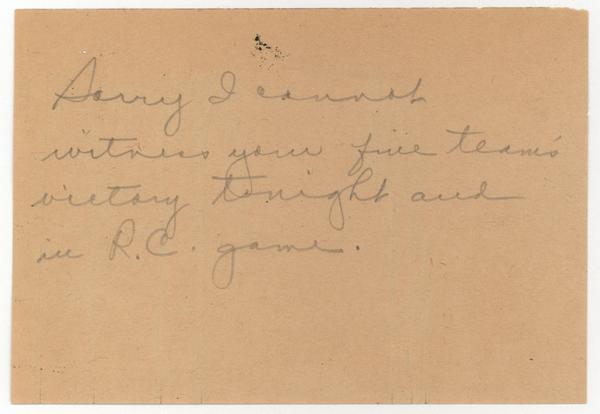 Sorry I cannot
witness your fine team's
victory tonight and
in R.C. game.